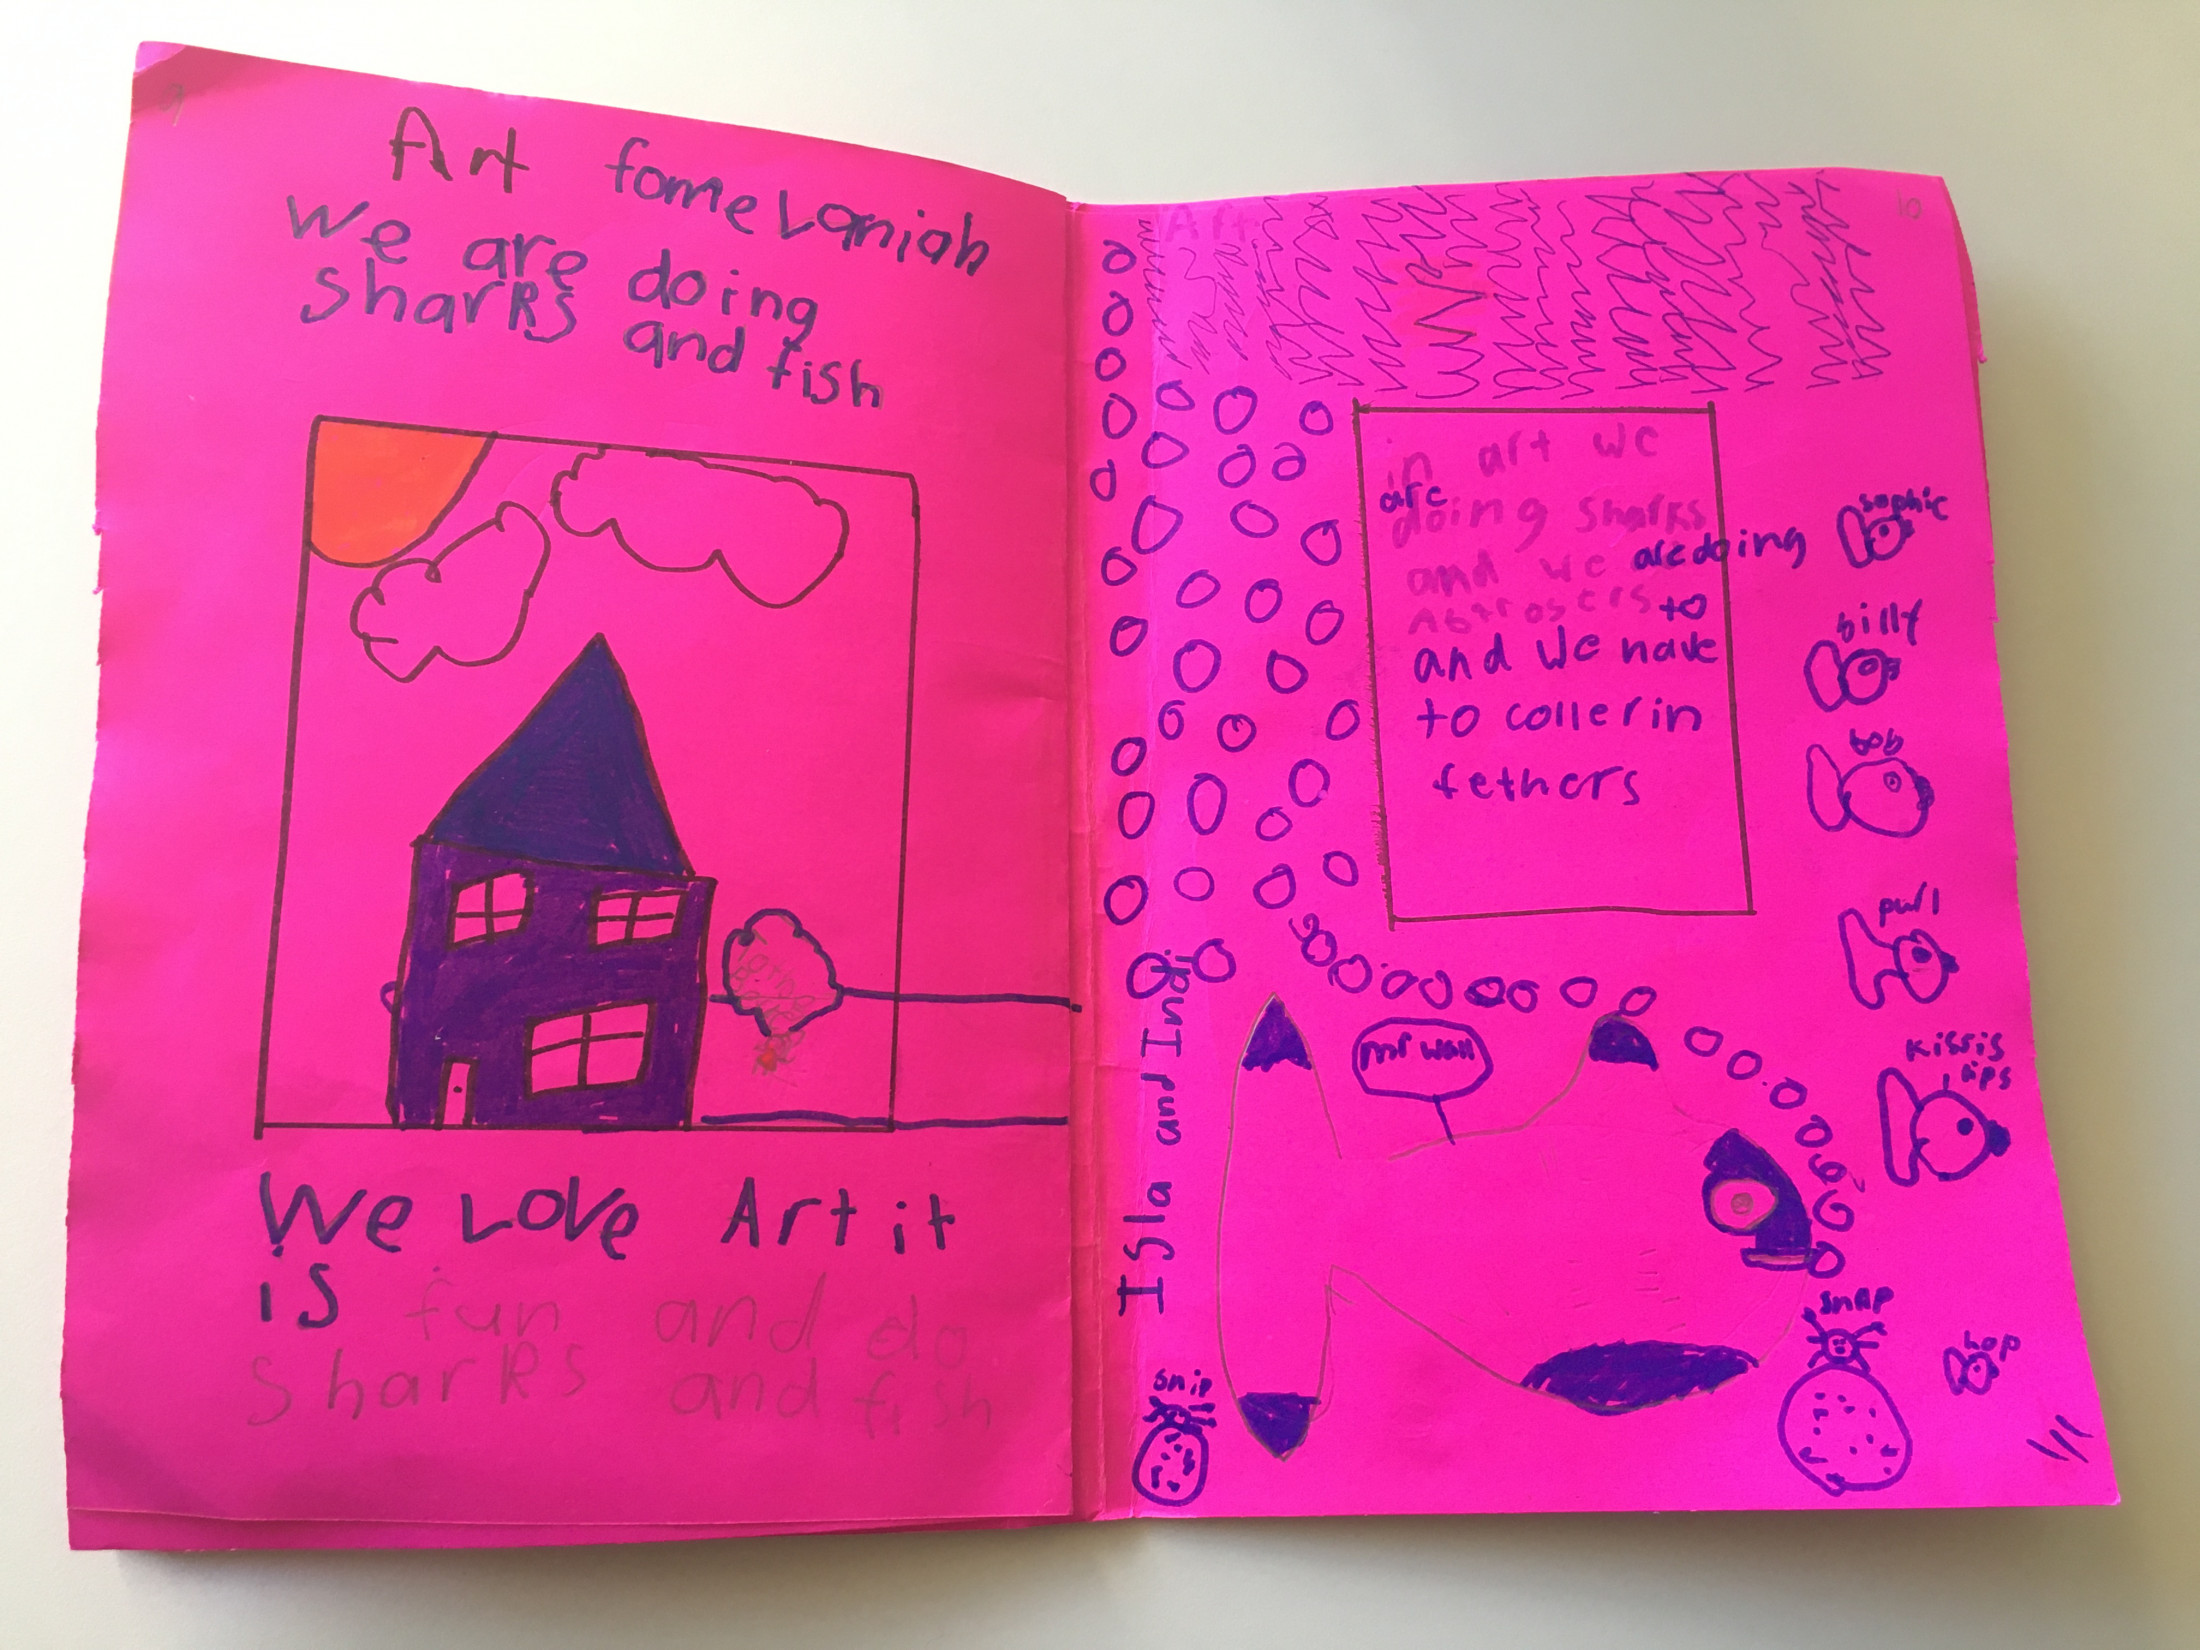 9
Art fome Laniah
We are doing
sharks and fish
We Love Art it
is fun and do
sharks and fish
10
Art
in art we
are
doing sharks
and we are doing
to
and we have
to coller in
fethers
sophie
billy
bob
purl
kissis
lips
snap
hop
mr wall
Isla and Indi
snip